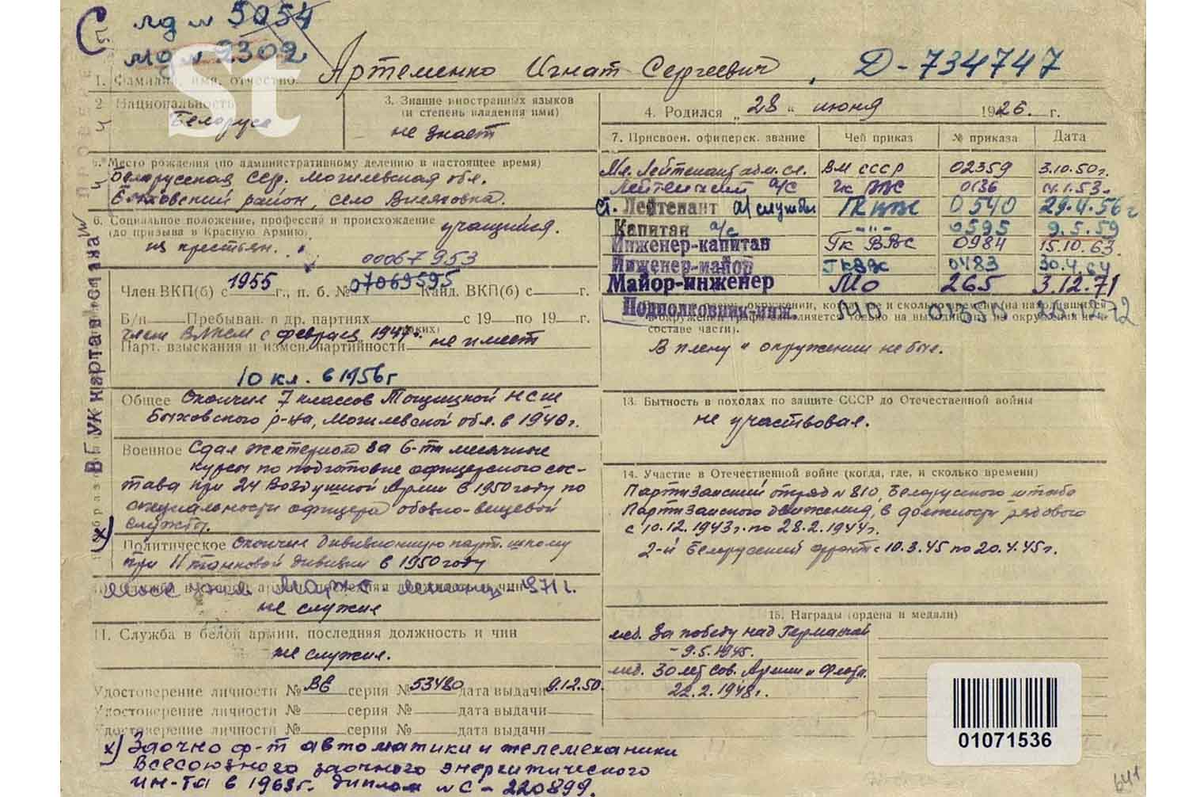 С
лд № 5054
мд № 2302
St
1. Фамилия, имя, отчество Артеменко Игнат Сергеевич, Д-734747
2. Национальность
Белорус
3. Знание иностранных языков
(и степень владения ими)
не знает
4. Родился „28" июня 1926.г.
7. Присвоен. офицерск. звание Чей приказ № приказа Дата
Мл. Лейтенант адм. сл. ВМ СССР 02359 3.10.50г.
Лейтенант а/с 0136 14.1.53.
Ст. Лейтенант а/службы 0540 29.4.56г
Капитан а/с -"- 0595 9.5.59
Инженер-капитан Гк ВВС 0984 15.10.63
Инженер-майор 0483 30.4.64
Майор-инженер МО 265 3.12.71
Подполковник-инж. МО
Место рождения (по административному делению в настоящее время)
Белорусская ССР. Могилевская обл.
Быховский район, село
6. Социальное положение, профессия и происхождение
(до призыва в Красную Армию) учащийся.
из крестьян.
00067953
Член ВКП(б) с 1955 г., п. б. № 07069595 Канд. ВКП(б) с г.
Б/п Пребыван. в др. партиях с 19 по 19 г.
член ВЛКСМ с февраля
Парт. взыскания и измен. партийности не имеет
составе части).
В плену и окружении не был.
10 кл. в 1956г
Общее Окончил 7 классов НСШ
Быховского р-на, Могилевской обл. в 1940г.
13. Бытность в походах по защите СССР до Отечественной войны
не участвовал.
Военное Сдал экстерном за 6-ти месячные
курсы по подготовке офицерского сос-
тава при 24 Воздушной Армии в 1950 году по
специальности офицера обозно-вещевой
службы.
х)
Политическое Окончил дивизионную парт. школу
при 11 танковой дивизии в 1950 году
14. Участие в Отечественной войне (когда, где, и сколько времени)
Партизанский отряд № 810, Белорусского штаба
Партизанского движения, в должности рядового
с 10.12.1943г. по 28.2.1944г.
2-й Белорусский фронт с 10.3.45 по 20.4.45г.
1971г.
не служил
11. Служба в белой армии, последняя должность и чин
не служил.
15. Награды (ордена и медали)
мед. За победу над Германией
- 9.5.1945.
мед. 30 лет Сов. Армии и Флота
22.2.1948г.
Удостоверение личности № ВЕ серия № 53480 дата выдачи 9.12.50.
Удостоверение личности № серия № дата выдачи
Удостоверение личности № серия № дата выдачи
х) Заочно ф-т автоматики и телемеханики
Всесоюзного заочного энергитического
ин-та в 1963г. диплом № С-220899.
В ГУК карта выслана
01071536
641